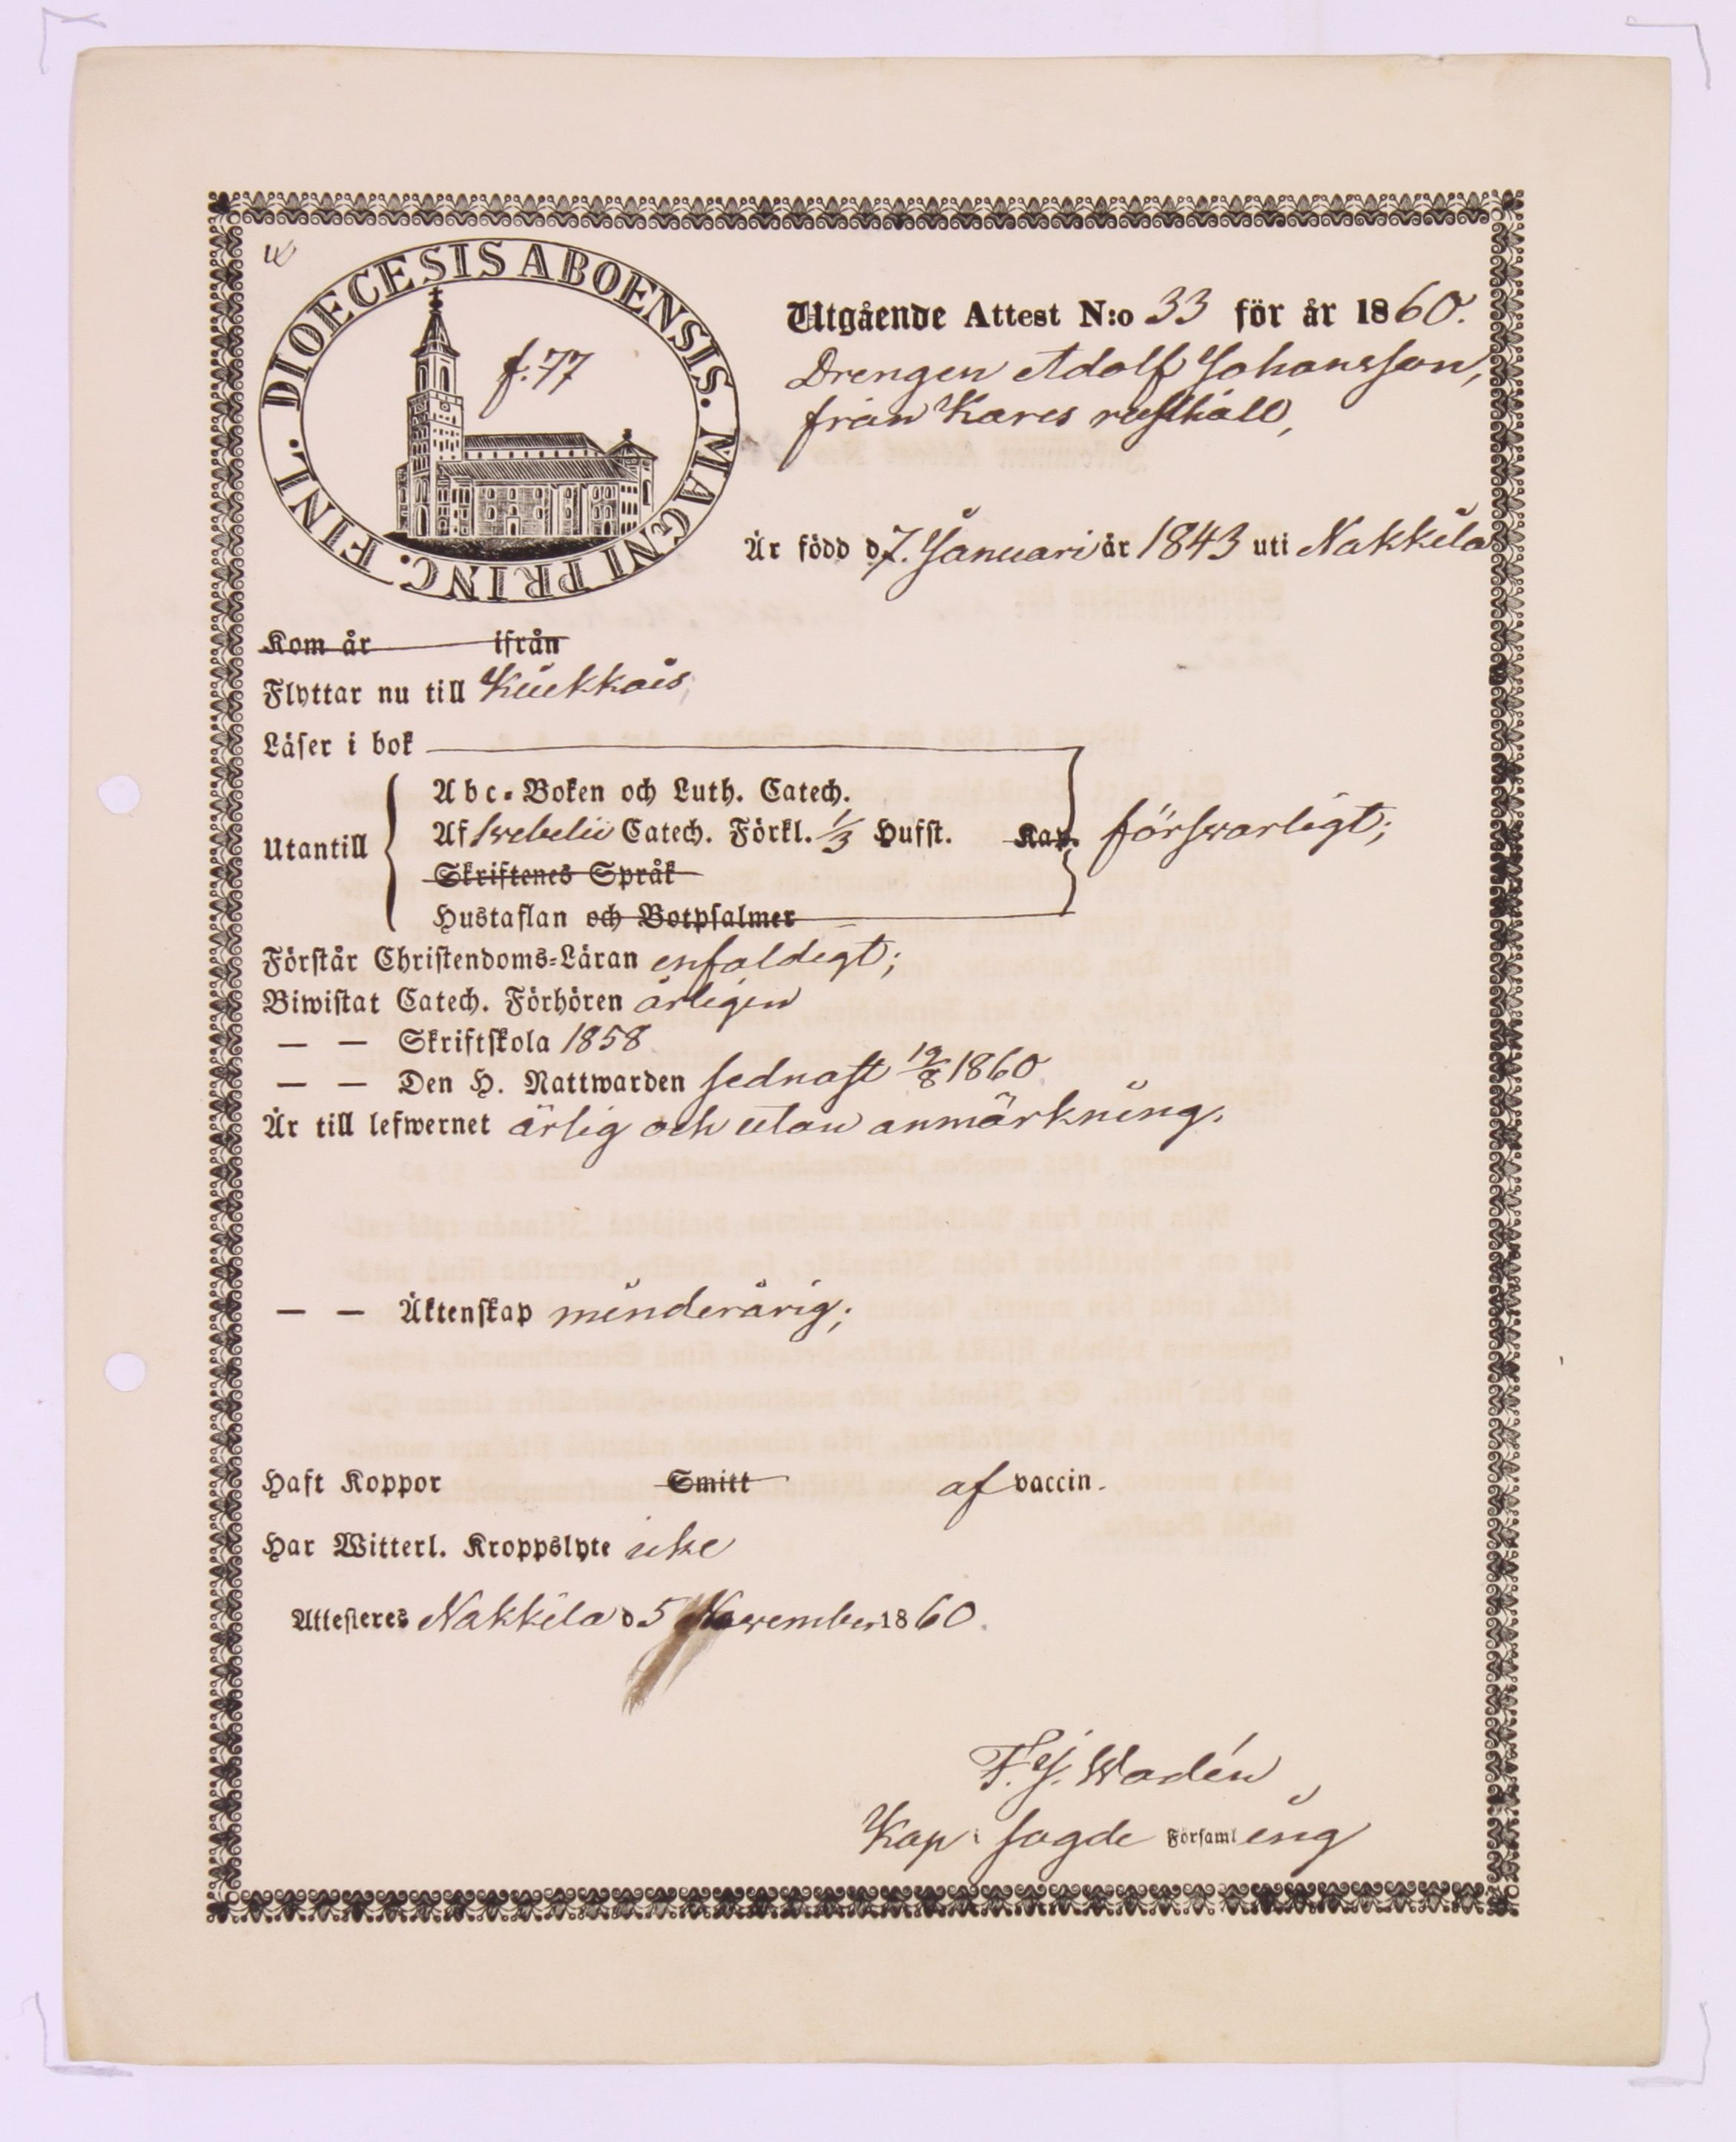 DIOECESIS ABOENSIS. MAGNI PRINC. FINL.
f. 77
Utgående Attest N:o 33 för år 1860.
Drengen Adolf Johansson,
från Kares rusthåll,
Är född d 7. Januari år 1843 uti Nakkila
Kom år ifrån
Flyttar nu till Kiukkais,
Läser i bok
Utantill
Abc-Boken och Luth. Catech.
Af Swebelii Catech. Förkl. 1/3 Husst. Kap. förswarligt;
Skriftenes Språk
Hustaflan och Botpsalmer
Förstår Christendoms-Läran enfaldigt;
Biwistat Catech. Förhören årligen
— — Skriftskola 1858
— — Den H. Nattwarden sednast 19/8 1860
Är till lefwernet ärlig och utan anmärkning.
— — Äktenskap minderårig;
Haft Koppor Smitt af vaccin.
Har Witterl. Kroppslyte icke
Attesteres Nakkila d 5 November 1860.
F. J. Wadén
Kap i sagde Församling